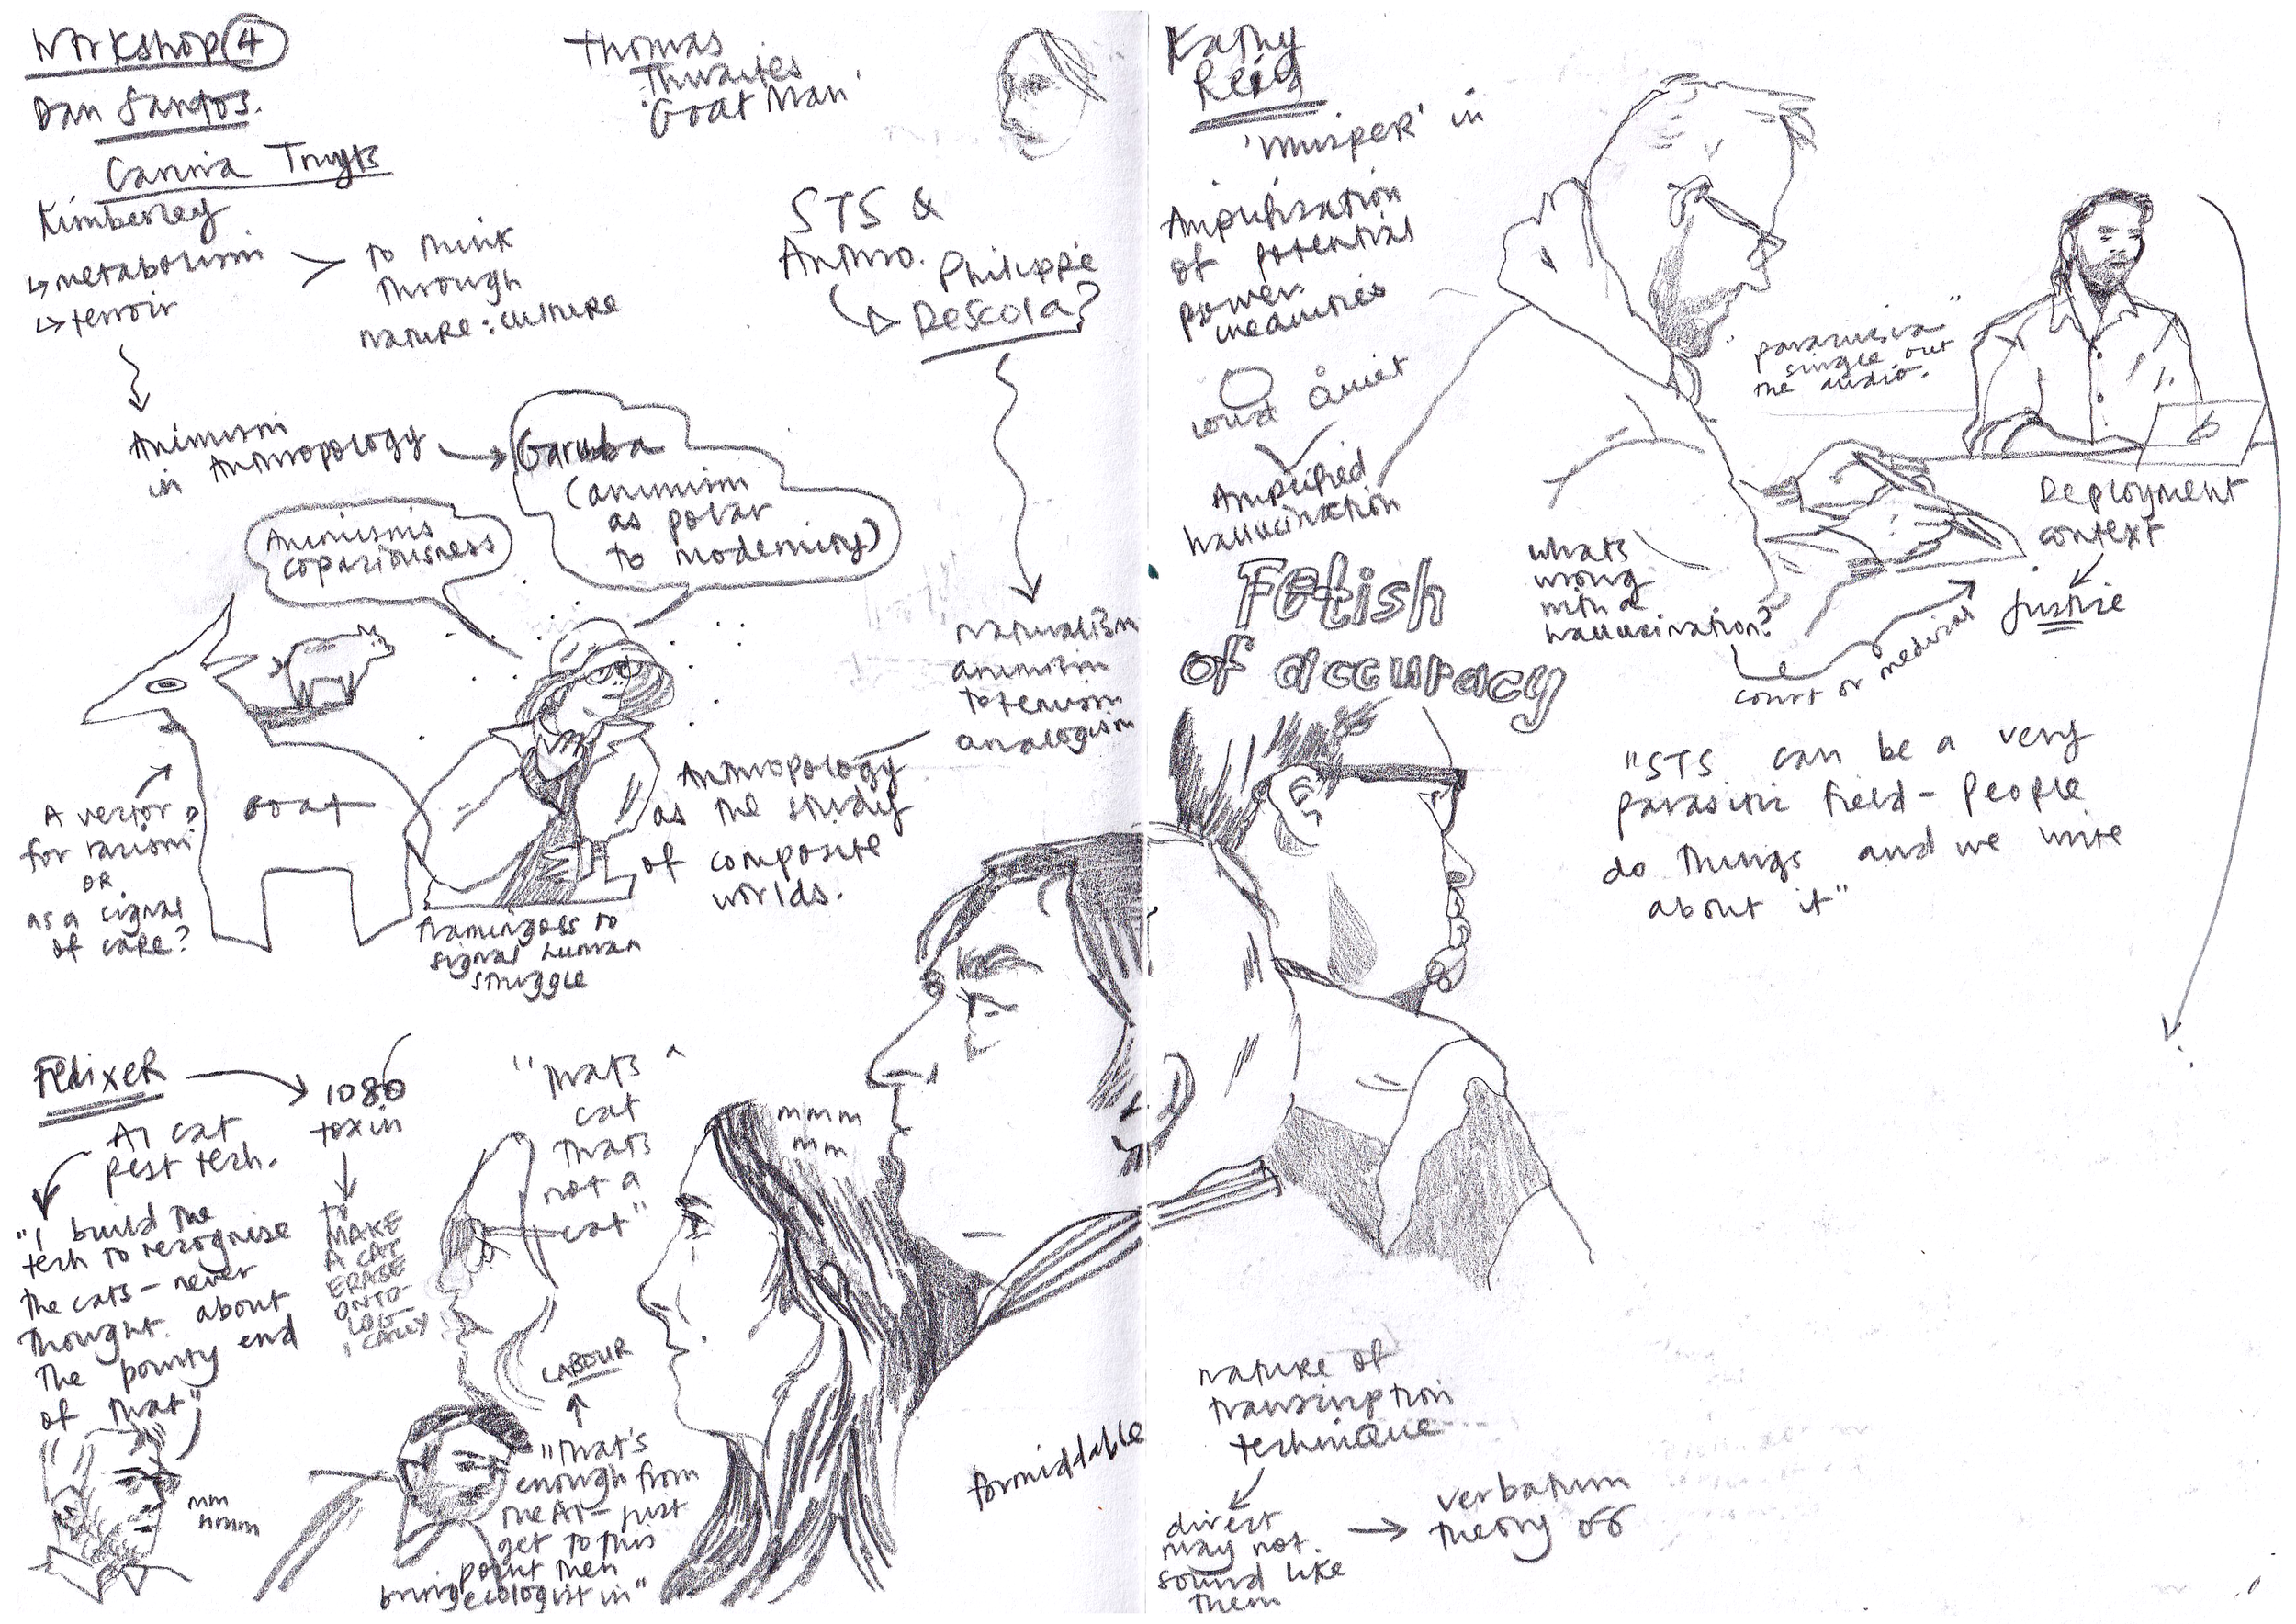 Workshop 4
Dan Santos.
Carina Truyts
Kimberley
↳ metabolism
↳ terroir
> to think
through
nature : culture
Animism
in Anthropology
Garuba
(animism
as polar
to modernity)
Animisms
A vector
for racism
OR
as a signal
of care?
goat
flamingoes to
signal human
struggle
Thomas
Thwaites
'Goat Man'
STS &
Anthro.
Philippe
Descola?
naturalism
animism
totemism
analogism
Anthropology
as the study
of composite
worlds.
FELIXER
AI cat
pest tech.
"I build the
tech to recognise
the cats – never
thought about
the pointy end
of that"
mm
mmm
1080
toxin
to
MAKE
A CAT
ERASE
ONTO-
LOG
ICALLY
"thats a
cat
thats
not a
cat"
mmm
mm
LABOUR
"that's
enough from
the AI – just
get to this
point then
bring ecologist in"
formiddable
Kathy
Reid
'Whisper' in
Amplification
of potential
power
inequities
loud quiet
Amplified
hallucination
Fetish
of accuracy
single out
the audio.
whats
wrong
with a
hallucination?
court or medical
Deployment
context
justice
"STS can be a very
parasitic field – people
do things and we write
about it"
nature of
transcription
technique
direct
may not
sound like
them
verbatum
theory of